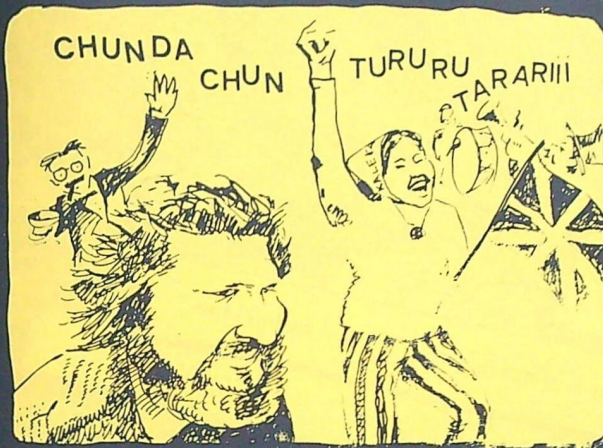 CHUNDA
CHUN
TURURU
TARARIII